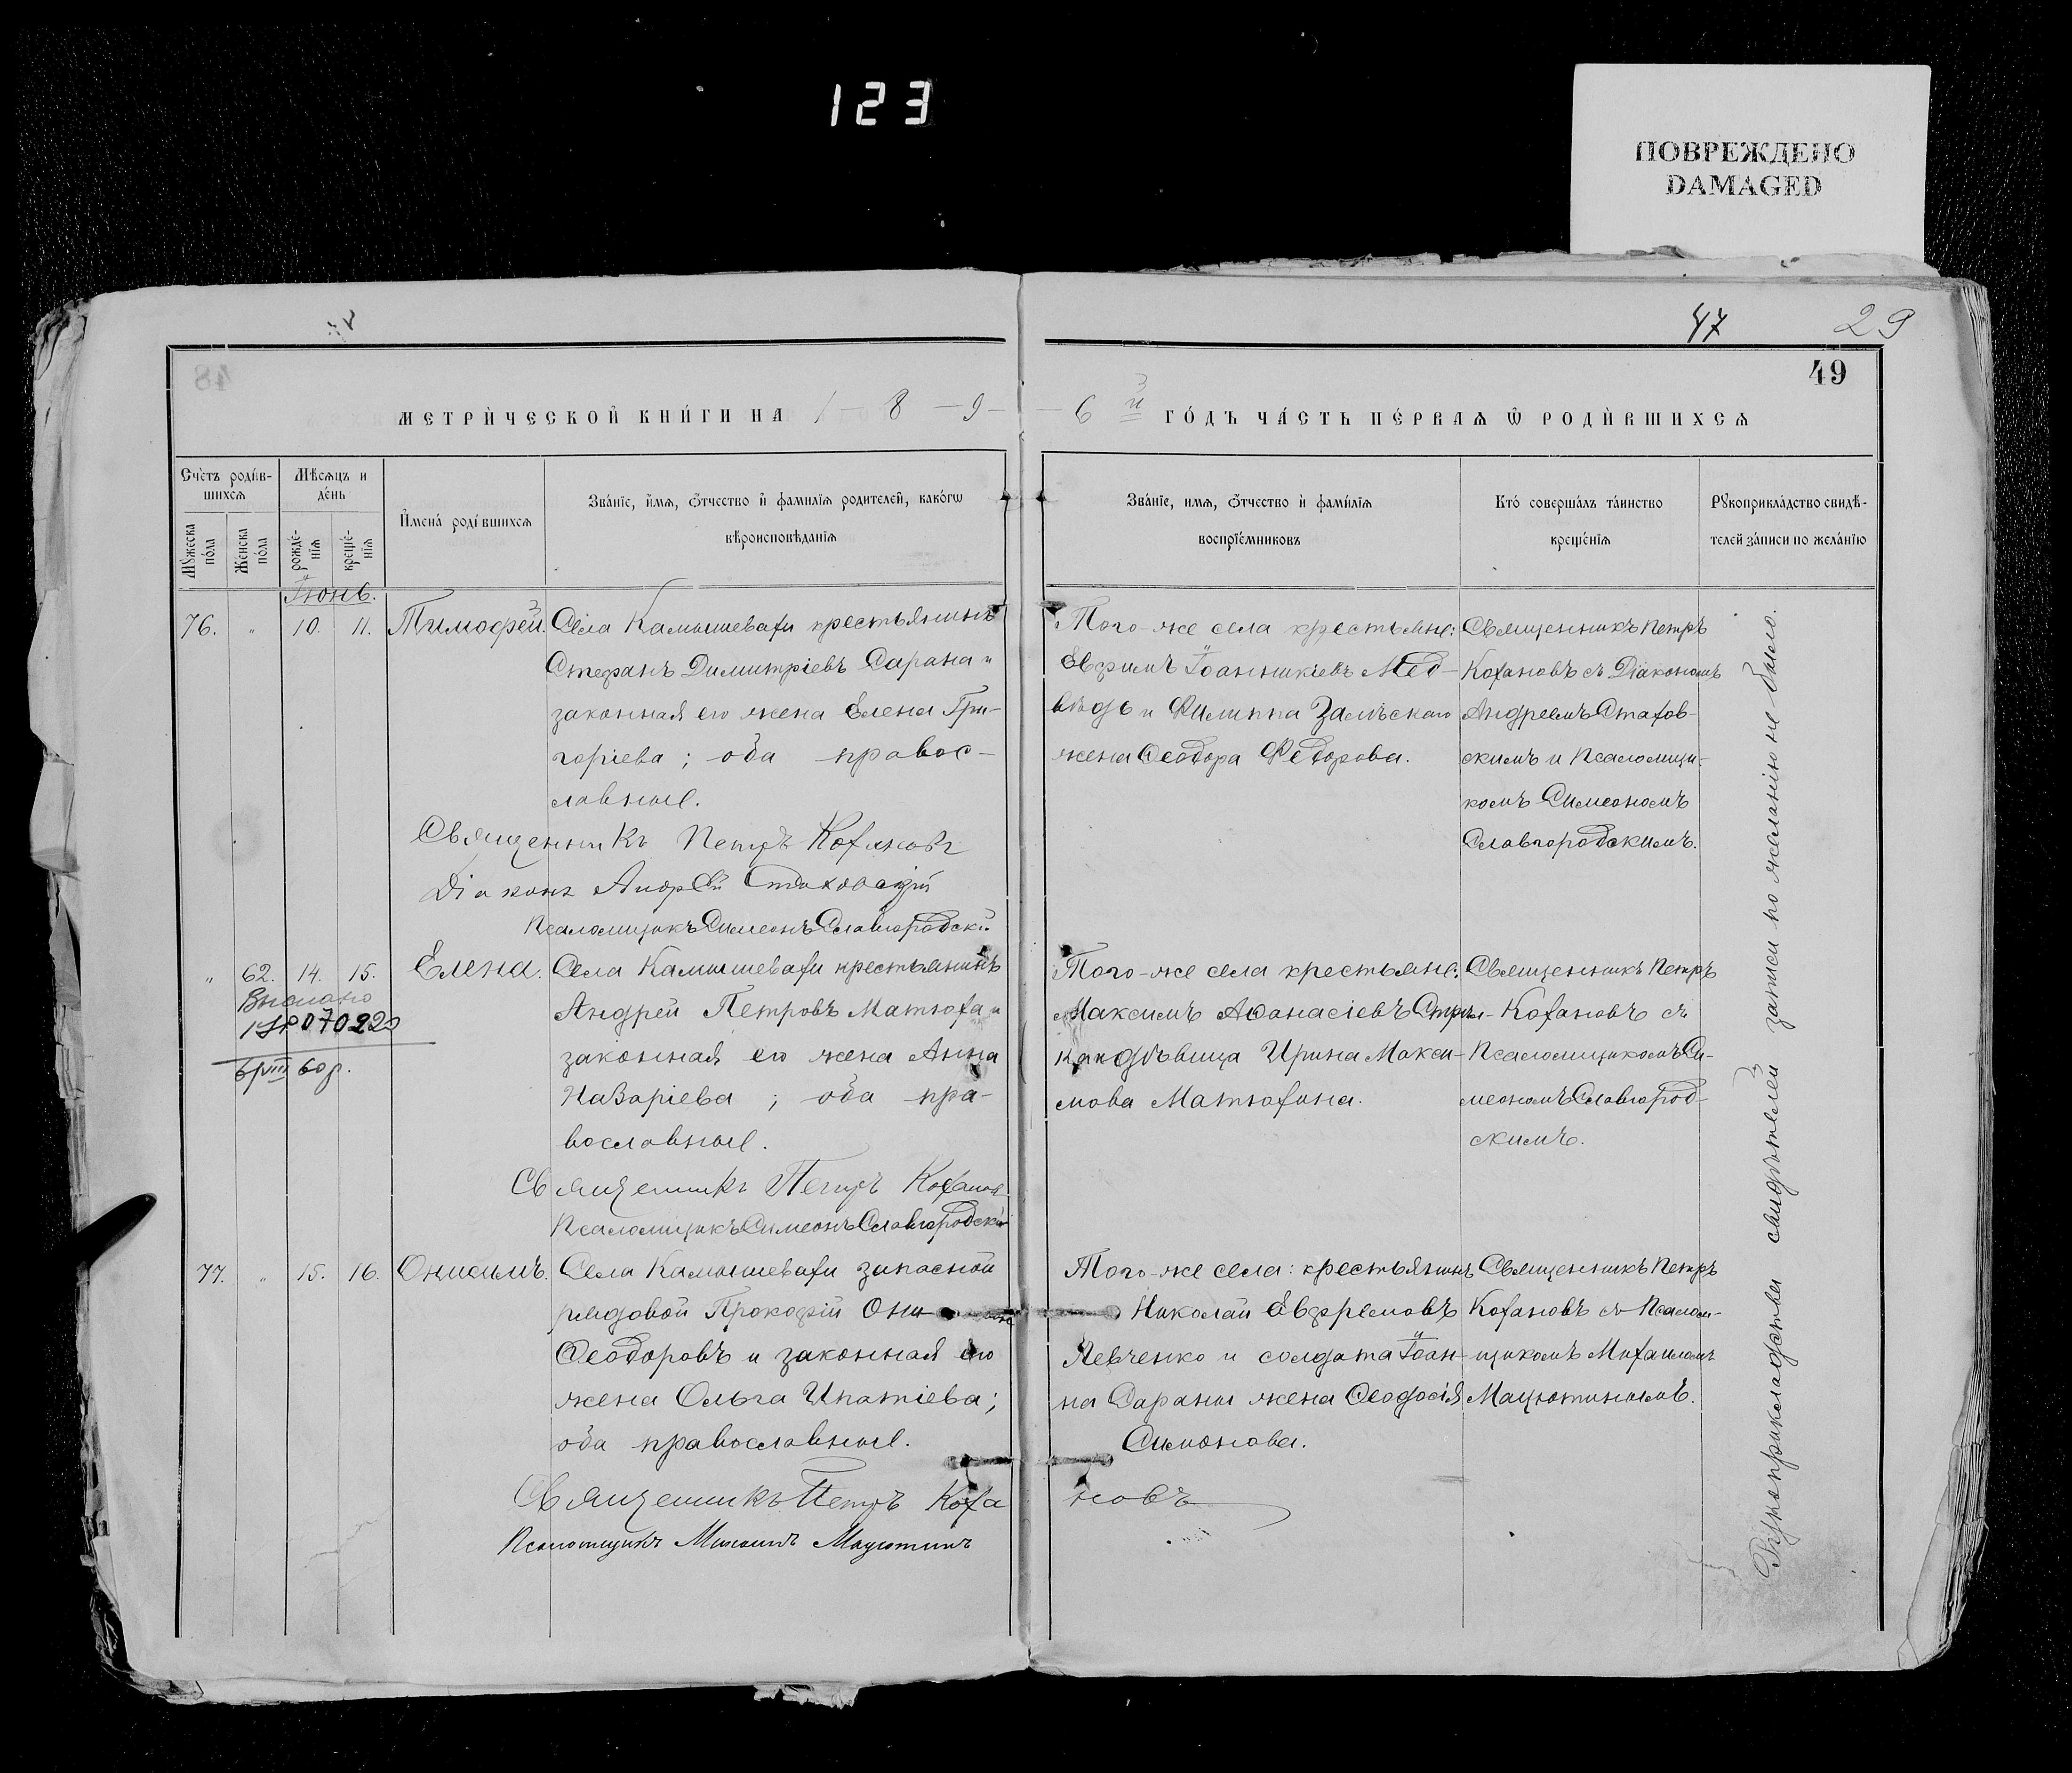 123
ПОВРЕЖДЕНО
DAMAGED
47
29
49
МЕТРИ́ЧЕСКОЙ КНИ́ГИ НА 1 – 8 – 9 –
– 6 й ГО́ДЪ ЧА́СТЬ ПЕ́РВАЯ Ѡ РОДИ́ВШИХСЯ
Сче́тъ роди́в-
шихся
Мѣсяцъ и
де́нь
Мꙋ́жеска
по́ла
Же́нска
по́ла
рожде́-
нія
креще́-
нія
И҆мена̀ роди́вшихся
Зва́ніе, и҆́мя, ѻ҆́тчество и҆ фамилія родителей, како́гѡ
вѣроисповѣ́данія
Зва́ніе, имя, ѻ҆́тчество и҆ фами́лія
воспріе́мниковъ
Кто̀ соверша́лъ та́инство
креще́нія
Рꙋкоприкла́дство свидѣ́-
телей за́писи по жела́нію
Іюнь.
76. " 10. 11. Тимофей. Села Камышевахи крестьянинъ
Стефанъ Димитріевъ Сарана и
законная его жена Елена Гри-
горіева ; оба правос-
лавные.
Священникъ Петръ Кохановъ
Діаконъ Андрей Стаховскій
Псаломщикъ Симеонъ Славгородскій
Того-же села крестьяне:
Евфимъ Іоанникіевъ Мед-
вѣдь и Филиппа Залѣскаго
жена Ѳеодора Федорова.
Священникъ Петръ
Кохановъ съ Діакономъ
Андреемъ Стахов-
скимъ и Псаломщи-
комъ Симеономъ
Славгородскимъ.
" 62. 14. 15. Елена. Села Камышевахи крестьянинъ
Андрей Петровъ Матюха и
законная его жена Анна
Назаріева ; оба пра-
вославные.
070220
60 р.
Священникъ Петръ Коханов
Псаломщикъ Симеонъ Славгородскій
Того-же села крестьяне:
Максимъ Аѳанасіевъ
дѣвица Ирина Макси-
мова Матюхина.
Священникъ Петръ
Кохановъ съ
Псаломщикомъ Си-
меономъ Славгород-
скимъ.
77. " 15. 16. Онисимъ. Села Камышевахи запасной
рядовой Прокофій
Ѳеодоровъ и законная его
жена Ольга Ипатіева;
оба православные.
Священникъ Петръ Коха
новъ
Псаломщикъ Михаилъ Мацютинъ
Того-же села: крестьянинъ
Николай Евфремовъ
Левченко и солдата Іоан-
на Сараны жена Ѳеодосія
Симонова.
Священникъ Петръ
Кохановъ съ Псалом-
щикомъ Михаиломъ
Мацютинымъ.
Рукоприкладства свидѣтелей записи по желанію не было.